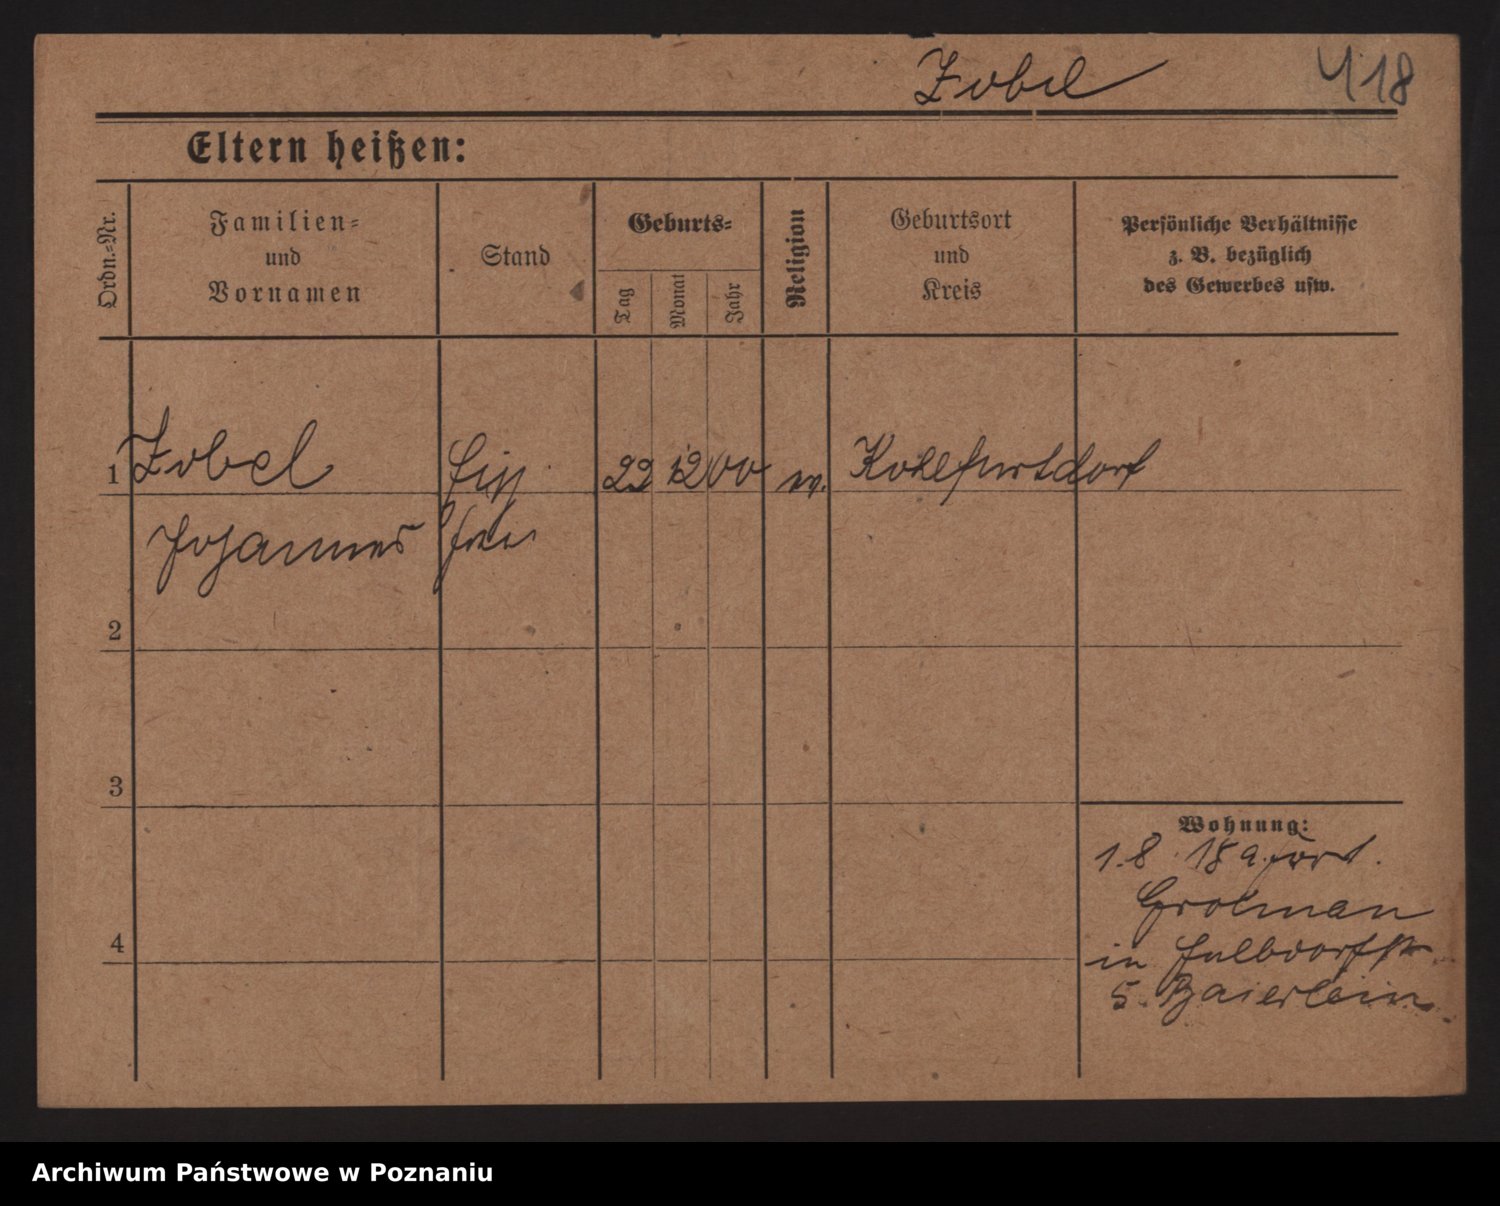 Zobel 418
Eltern heißen:
Ordn.-Nr.
Familien-
und
Vornamen
Stand
Geburts-
Tag
Monat
Jahr
Religion
Geburtsort
und
Kreis
Persönliche Verhältnisse
z. B. bezüglich
des Gewerbes usw.
1 Zobel 22 12 00 Kohlfurtdorf
Johannes
2
3
4
Wohnung:
1.8. 18 a. fort.
Grolman
in
5. Baierlein
Archiwum Państwowe w Poznaniu